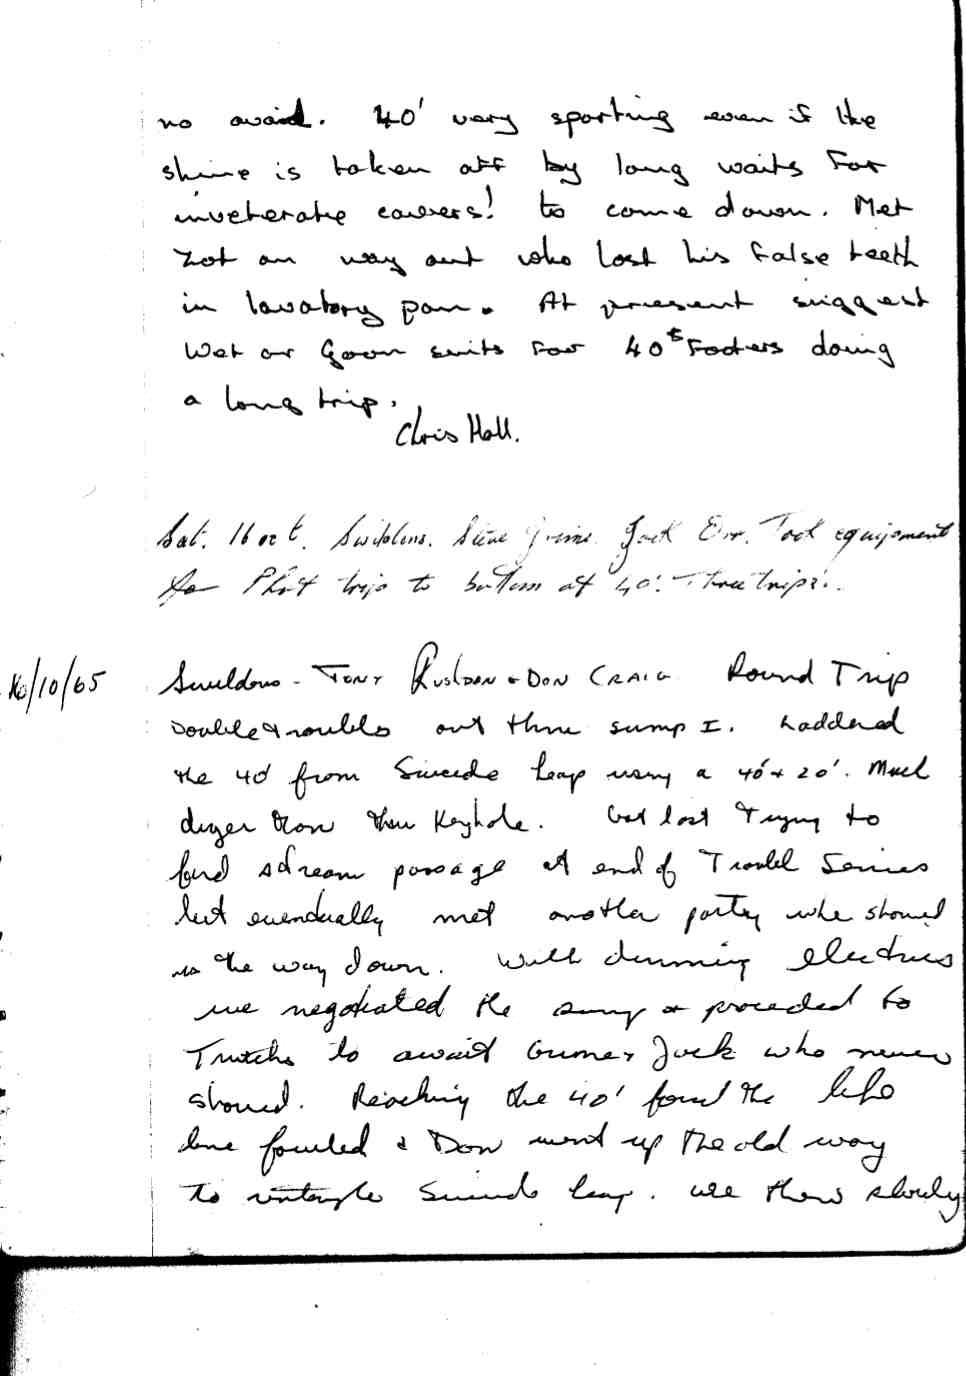 no avail. 40' very sporting even if the
shine is taken off by long waits for
inveterate cavers! to come down. Met
Zot on way out who lost his false teeth
in lavatory pan. At present suggest
Wet or Goon suits for 40ft Footers doing
a long trip.
Chris Hall.
Sat. 16 oct. Swildons. Steve Grime. Jack Orr. Took equipment
for Phot trip to bottom of 40'. Three trips!..
16/10/65 Swildons - TONY & DON CRAIG. Round Trip
Double troubles out thru sump I. Laddered
the 40' from Suicide leap using a 40' + 20'. Much
dryer than thru Keyhole. Got lost Trying to
find stream passage at end of Troubl Series
but evendually met another party who showed
us the way down. With dimming electrics
we negotiated the sump & proceded to
Tratchs to await Grime & Jack who never
showed. Reaching the 40' found the life
line fouled & Don went up the old way
to untangle Suicide leap. We then slowly